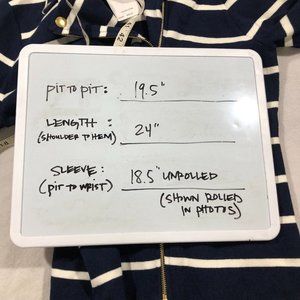 PIT TO PIT: 19.5"
LENGTH : 24"
(SHOULDER TO HEM)
SLEEVE: 18.5" UNROLLED
(PIT TO WRIST) (SHOWN ROLLED
IN PHOTOS)
42